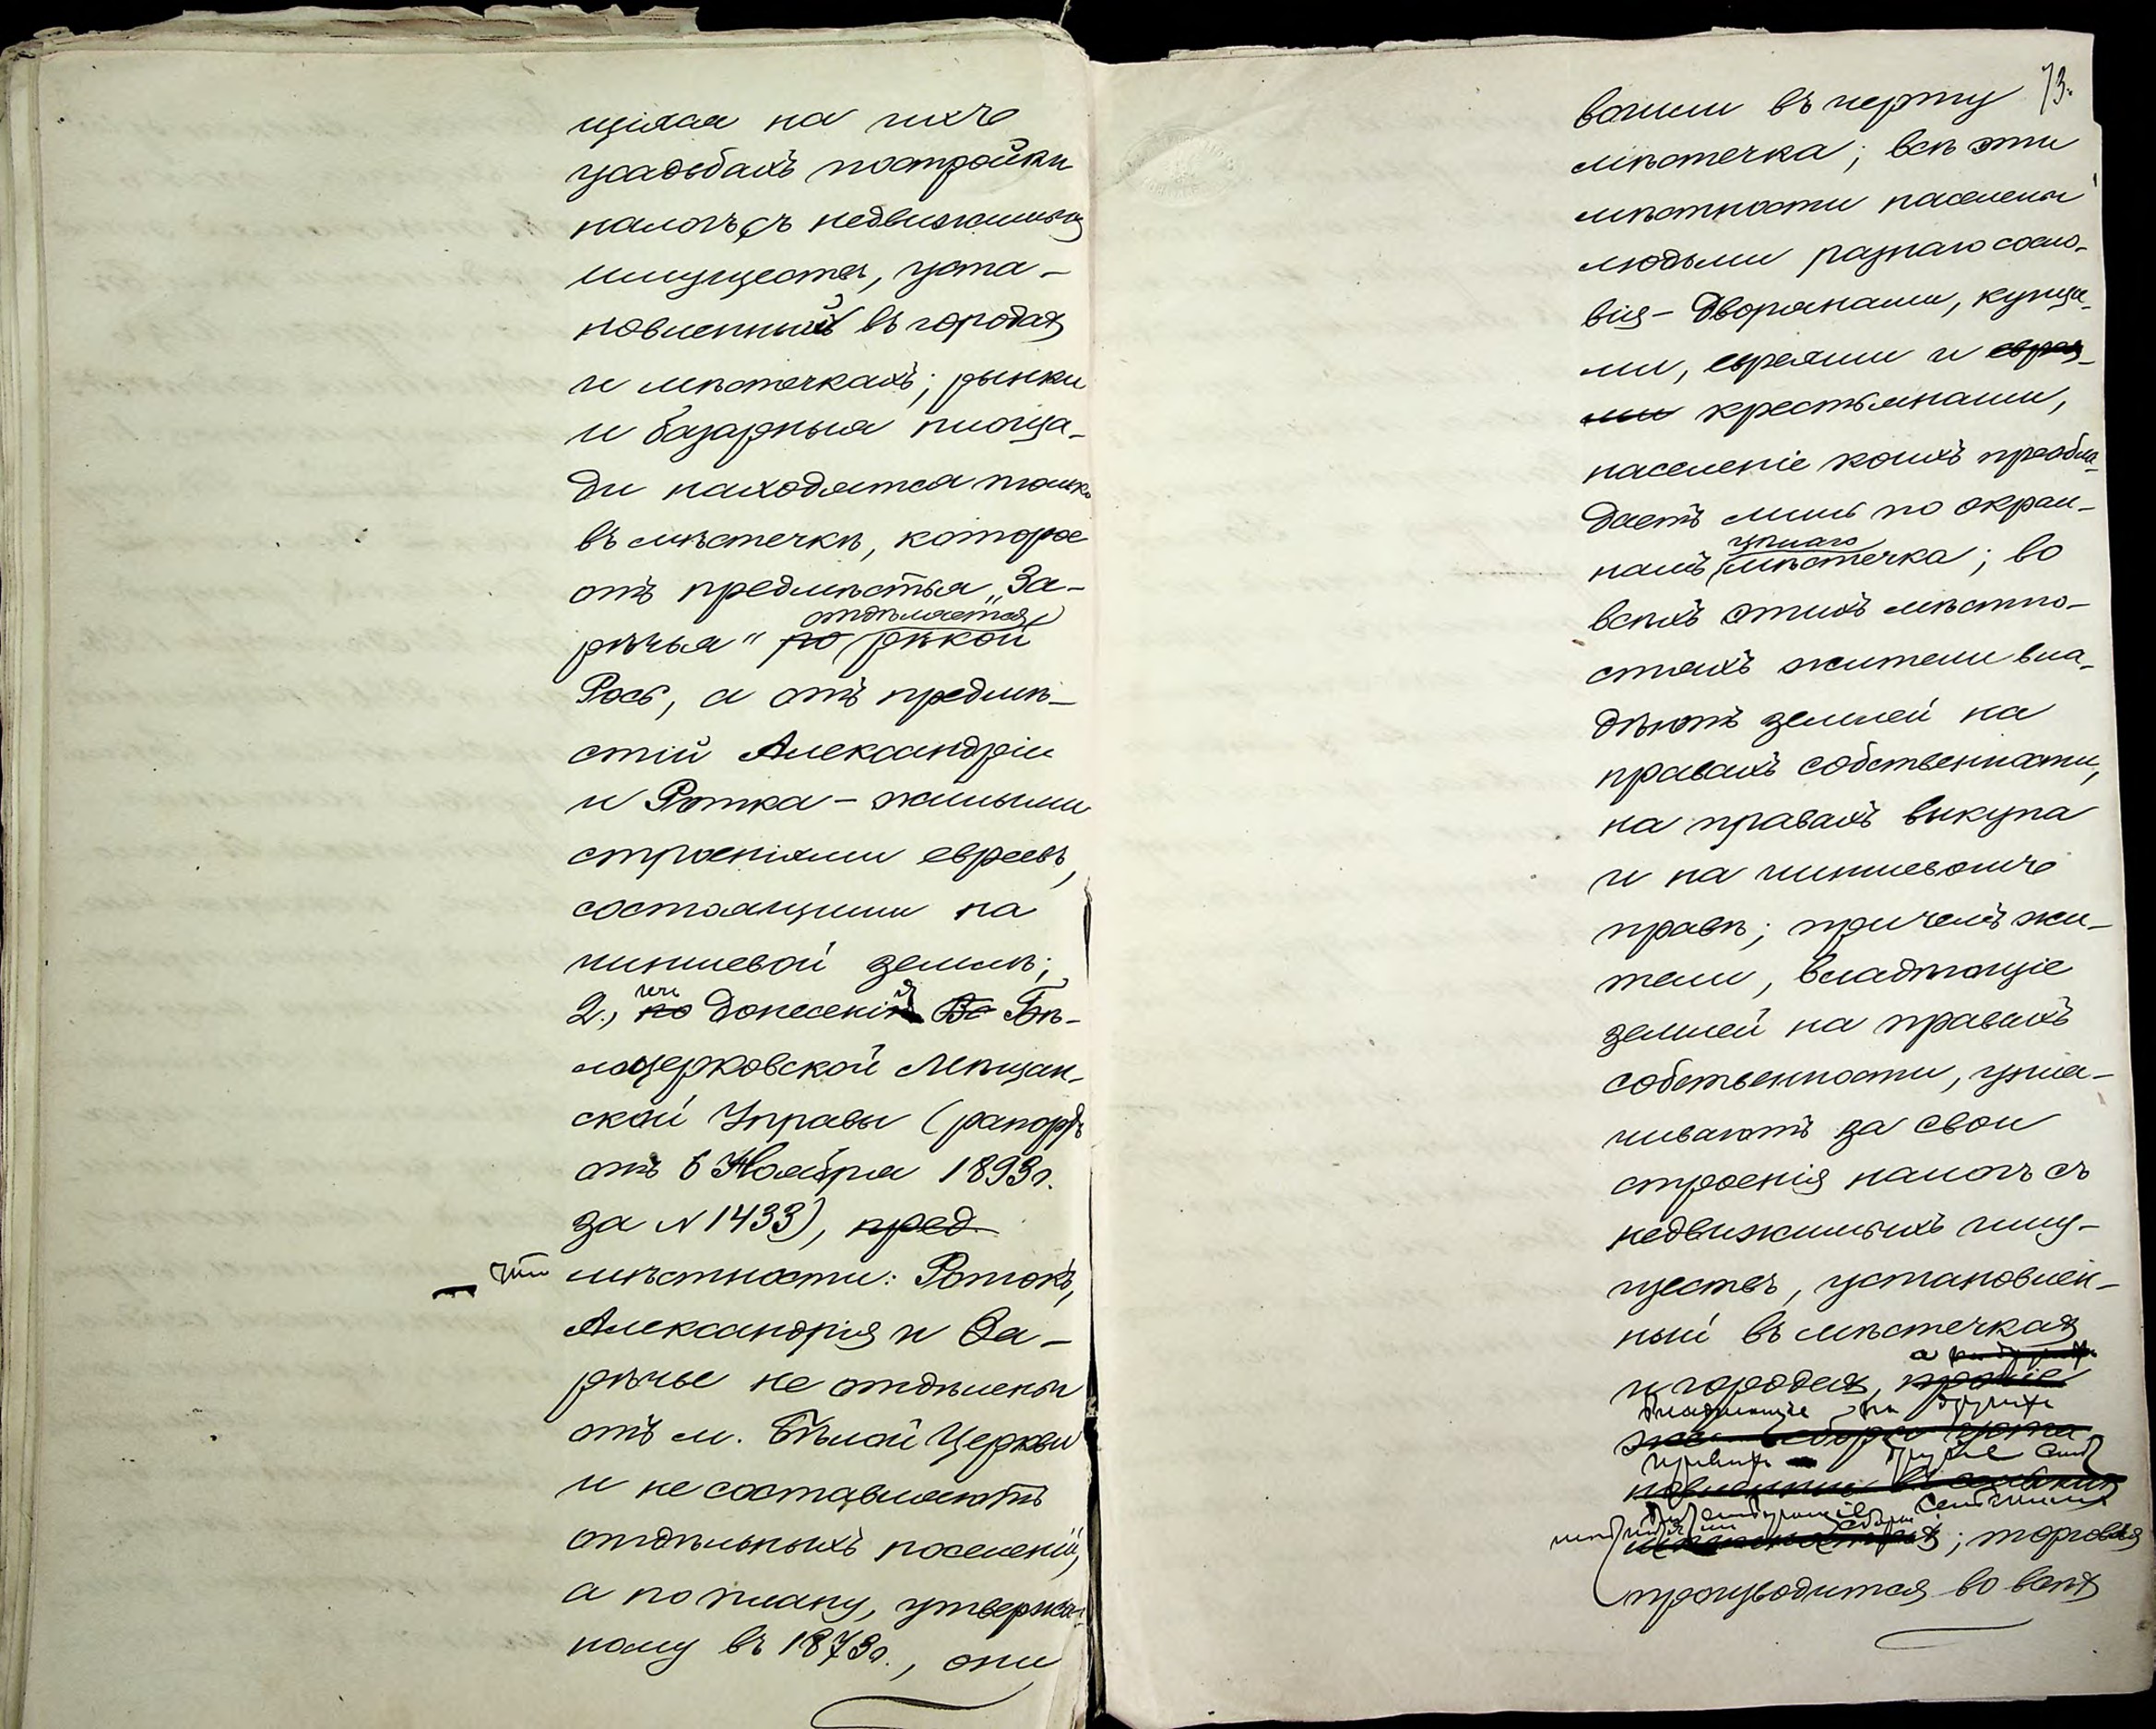 щіяся на ихъ
усадьбахъ постройки
налогъ съ недвижимыхъ
имуществъ, уста-
новленный въ городах
и мѣстечкахъ; рынки
и базарныя площа-
ди находятся только
въ мѣстечкѣ, которое
отъ предмѣстья „За-
отдѣляется
рѣчья" по рѣкой
Рось, а отъ предмѣ-
стій Александріи
и Ротка – жилыми
строеніями евреевъ,
состоящими на
чиншевой землѣ;
2., по донесенія Бѣ-
лоцерковской Мѣщан-
ской Управы (рапортъ
отъ 6 Ноября 1893г.
за N 1433), пред
что мѣстности: Ротокъ,
Александрія и За-
рѣчье не отдѣлены
отъ м. Бѣлой Церкви
и не составляютъ
отдѣльныхъ поселеній,
а по плану, утвержден-
ному въ 1873г., они
73.
вошли въ черту
мѣстечка; всѣ эти
мѣстности населены
людьми разнаго сосло-
вія – дворянами, купца-
ми, евреями и евреями
крестьянами,
населеніе коихъ преобла-
даетъ лишь по окраи-
самаго
намъ мѣстечка; во
всѣхъ этихъ мѣстно-
стяхъ жители вла-
дѣютъ землей на
правахъ собственности,
на правахъ выкупа
и на чиншевомъ
правѣ; причемъ жи-
тели, владѣющіе
землей на правахъ
собственности, упла-
чиваютъ за свои
строенія налогъ съ
недвижимыхъ иму-
ществъ, установлен-
ный въ мѣстечках
а
и городах, прочіе
владѣющіе на другихъ
же сборы уста
правахъ
новленные въ сельских
мѣстностях; торговля
производится во всѣх